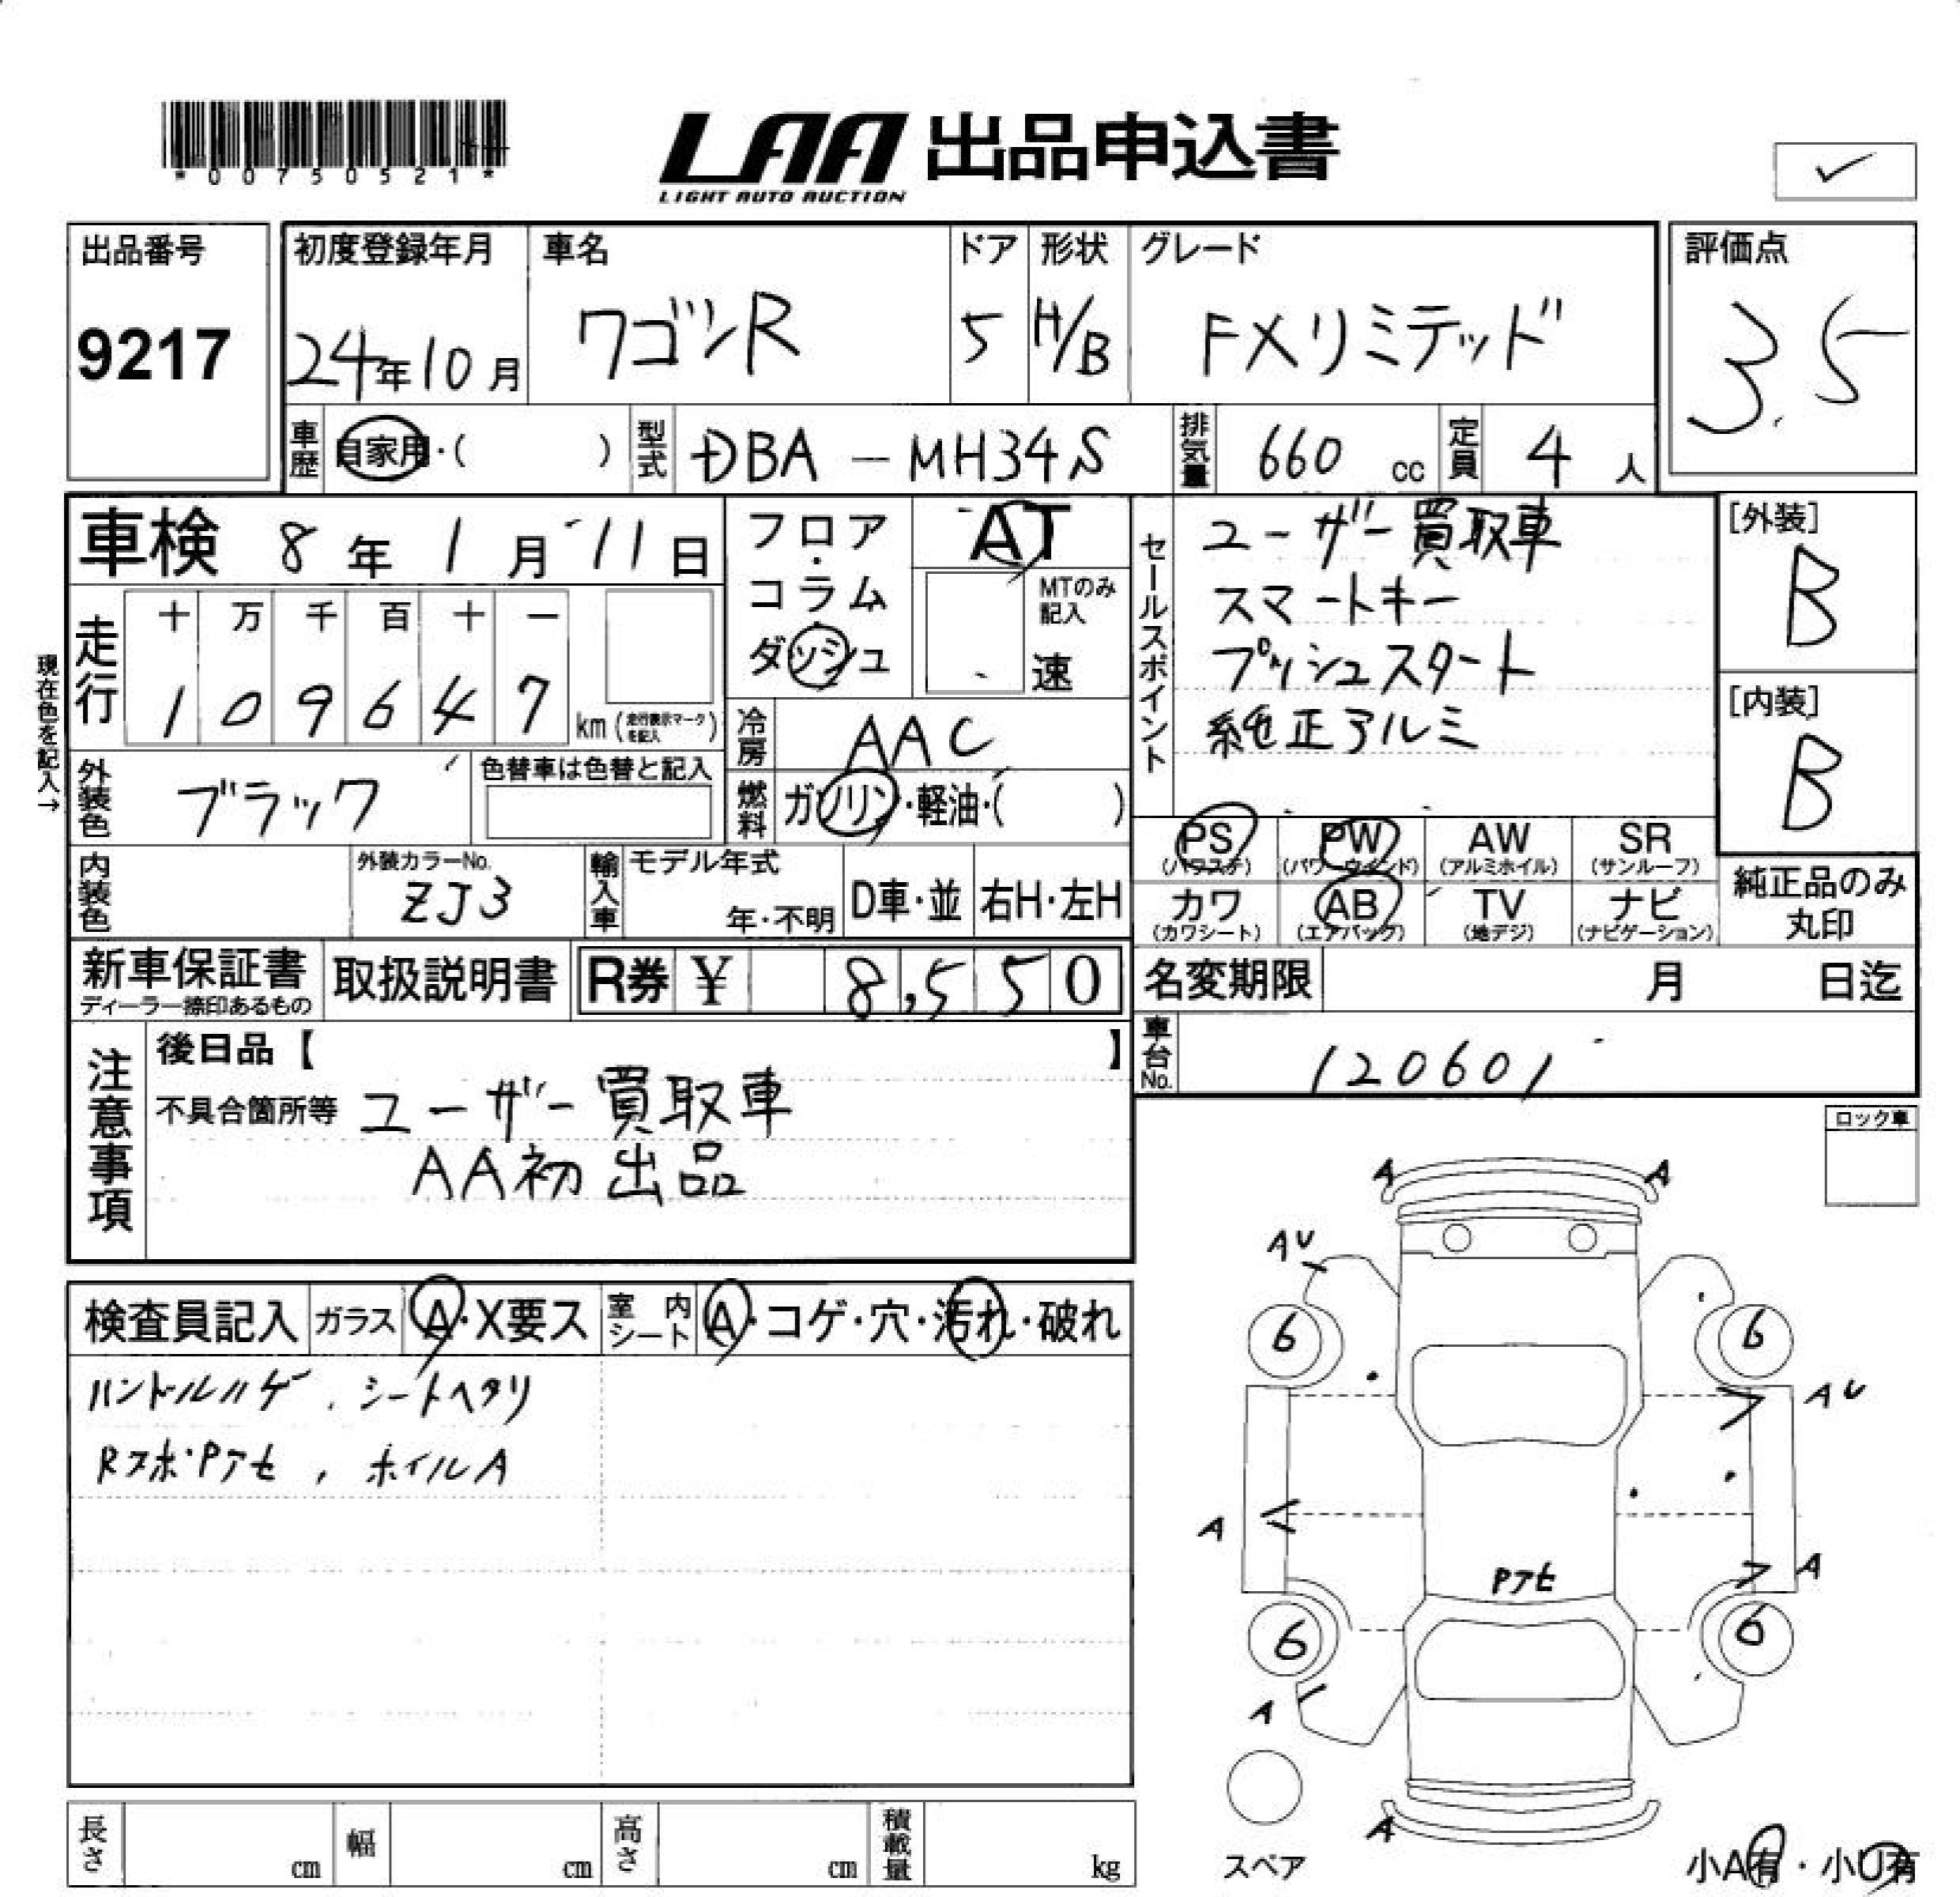 *00750521*
LAA 出品申込書
LIGHT AUTO AUCTION
出品番号
9217
初度登録年月
24年10月
車名
ワゴンR
ドア
5
形状
H/B
グレード
FXリミテッド
評価点
3.5
車歴
自家用・( )
型式
DBA-MH34S
排気量
660 cc
定員
4 人
車検 8年 1月 11日
フロア・コラム
ダッシュ
AT
MTのみ記入
速
セールスポイント
ユーザー買取車
スマートキー
プッシュスタート
純正アルミ
[外装]
B
[内装]
B
現在色を記入→
走行
十 万 千 百 十 一
1 0 9 6 4 7 km (走行表示マークを記入)
冷房
AAC
外装色
ブラック
色替車は色替と記入
燃料
ガソリン・軽油・( )
PS (パワステ)
PW (パワーウィンド)
AW (アルミホイル)
SR (サンルーフ)
カワ (カワシート)
AB (エアバック)
TV (地デジ)
ナビ (ナビゲーション)
純正品のみ丸印
内装色
外装カラーNo.
ZJ3
輸入車
モデル年式
年・不明
D車・並
右H・左H
新車保証書
ディーラー捺印あるもの
取扱説明書
R券 ¥ 8,550
名変期限 月 日迄
車台No.
120601
注意事項
後日品【 】
不具合箇所等 ユーザー買取車
AA初出品
ロック車
検査員記入
ガラス
A・X要ス
室内シート
A・コゲ・穴・汚れ・破れ
ハンドルハゲ、シートヘタリ
Rスポ・Pアセ、ホイルA
A A
AU
6 6
AU
A
Pアセ
A
6 6
A
A
スペア
小A有・小U有
長さ cm
幅 cm
高さ cm
積載量 kg